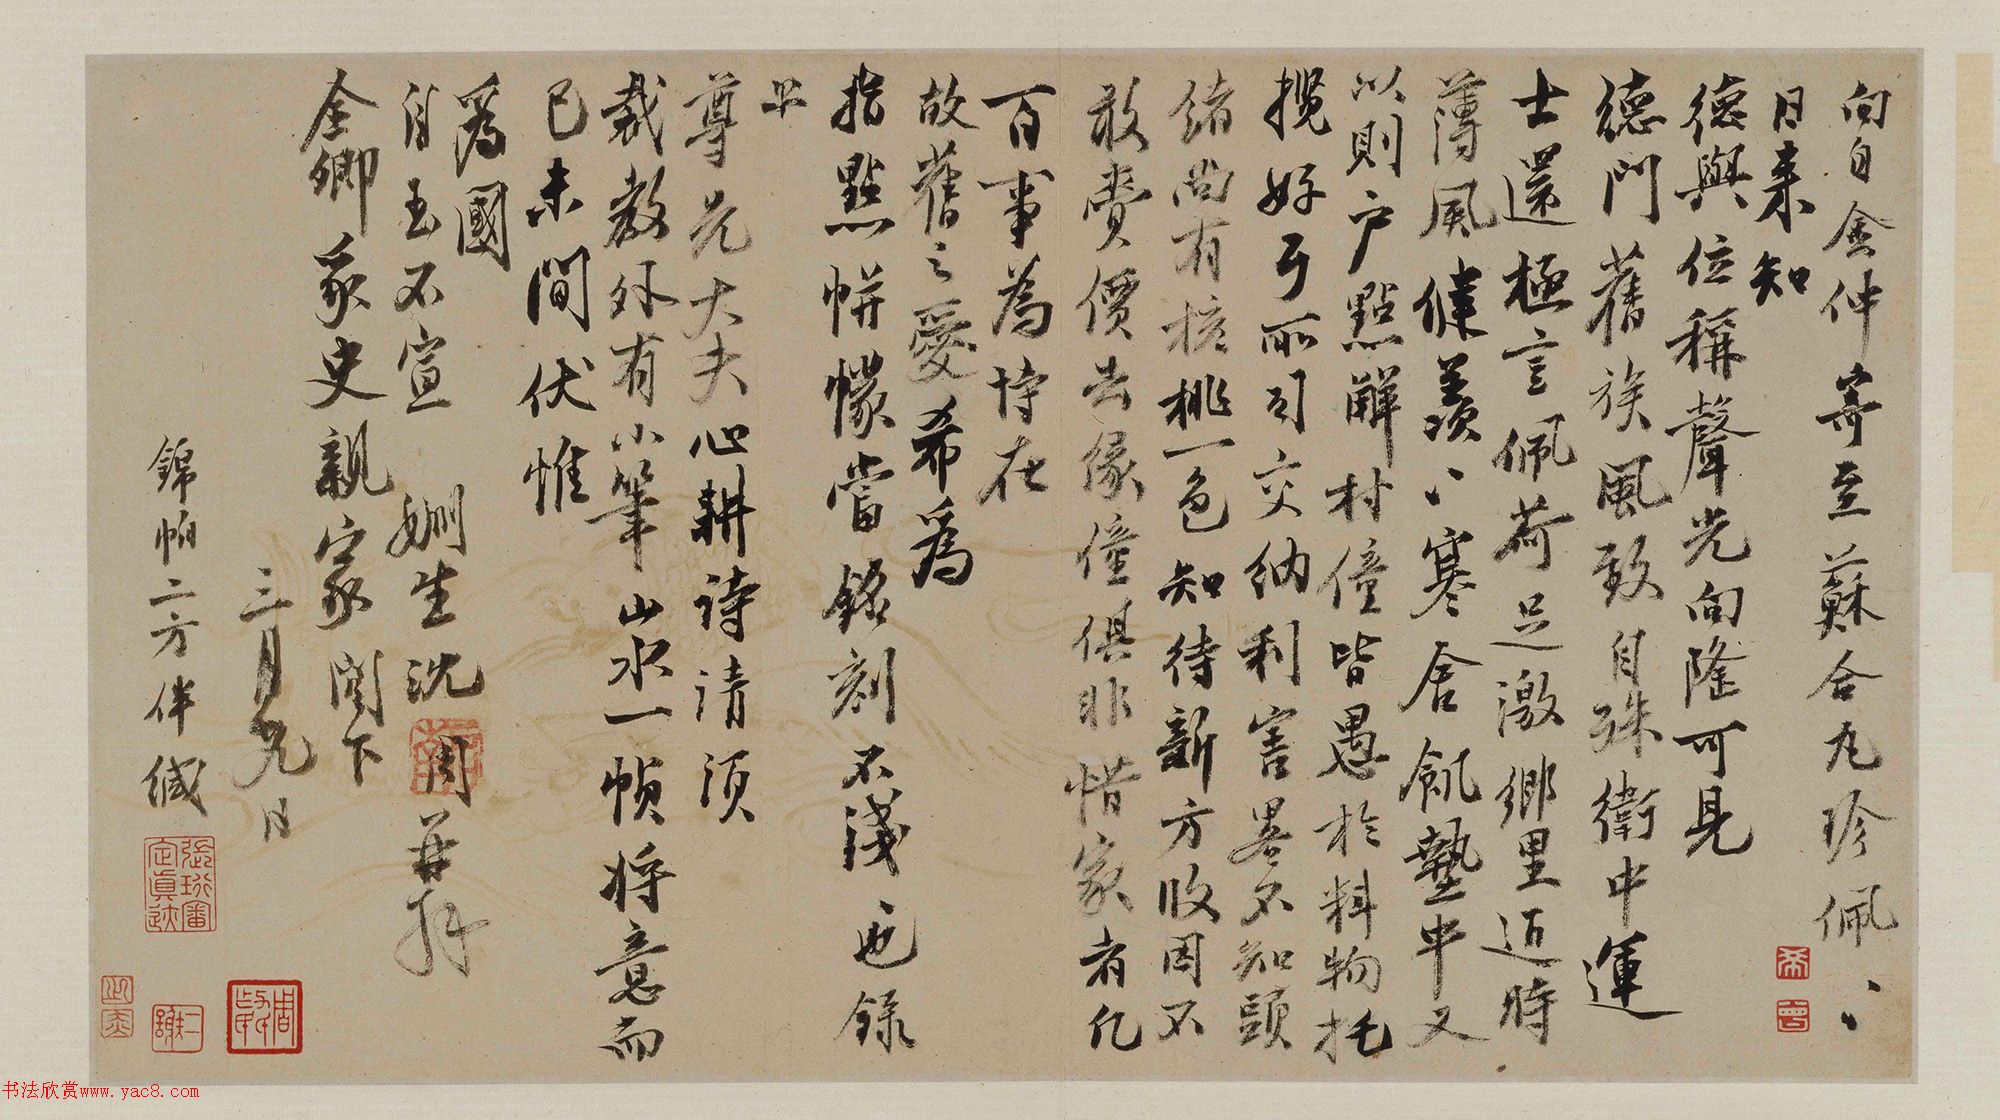 向自金仲寄至蘇合丸珍佩、、
日來知
德與位稱聲光向隆可見
德門舊族風致自殊衛中運
士還極言佩荷足激鄉里近時
薄風健羨、、寒舍飢墊中又
以則戶點解村僮皆愚於料物托
攬好歹所司交納利害畧不知頭
緒尚有糙粳一色知待新方收因不
敢費價去緣僮俱非惜家者凡
百事為恃在
故舊之愛希為
指點帡幪當銘刻不淺也錄
上
尊兄大夫心耕詩請須
裁教外有小筆山水一幀將意而
已未間伏惟
為國
自玉不宣 姻生沈周再拜
全卿冢史親家閣下
三月九日
錦帕二方伴緘
張珩審定真跡
书法欣赏www.yac8.com